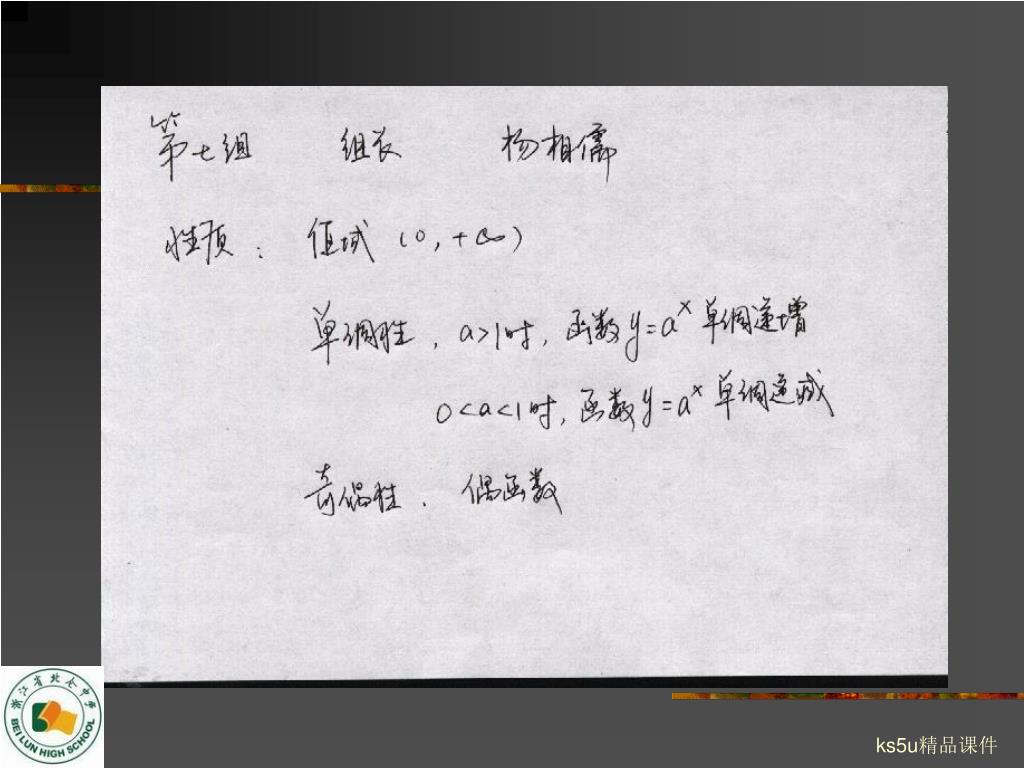 第七组 组长 杨相儒
性质: 值域 (0, +∞)
单调性, a>1时, 函数y=aˣ单调递增
0<a<1时, 函数y=aˣ单调递减
奇偶性. 偶函数
浙江省北仑中学
BEI LUN HIGH SCHOOL
ks5u精品课件